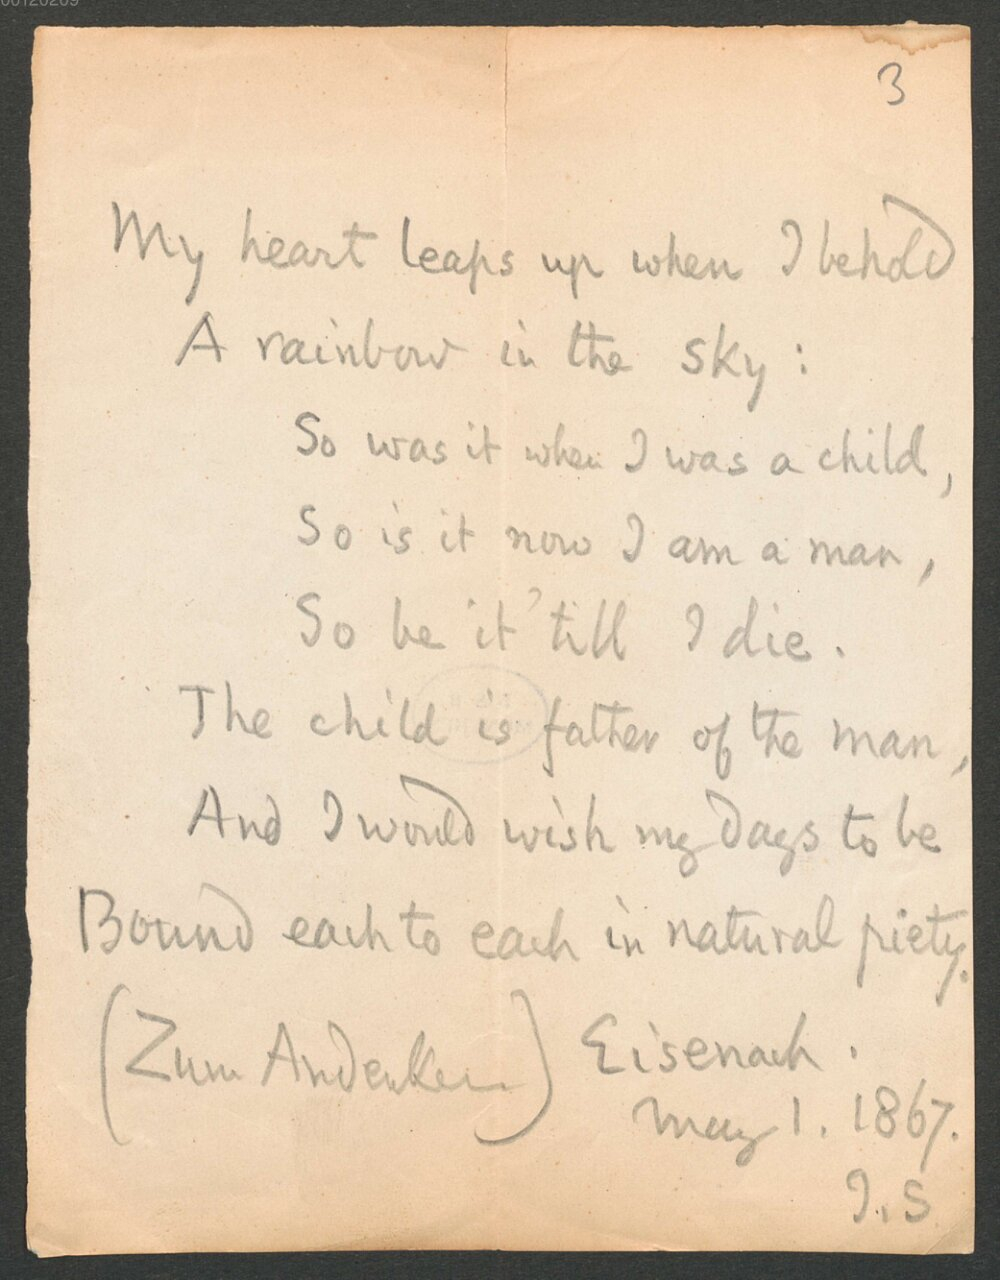 00120209
3
My heart leaps up when I behold
A rainbow in the sky:
So was it when I was a child,
So is it now I am a man,
So be it 'till I die.
The child is father of the man,
And I would wish my days to be
Bound each to each in natural piety.
(Zum Andenken) Eisenach.
May 1. 1867.
I.S